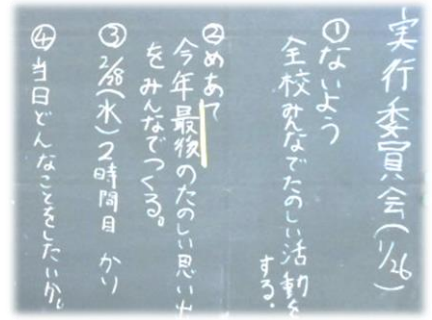 実行委員会(1/26)
①ないよう
全校みんなでたのしい活動を
する。
②めあて
今年最後のたのしい思い出
をみんなでつくる。
③2/28(水)2時間目 かり
④当日どんなことをしたいか。